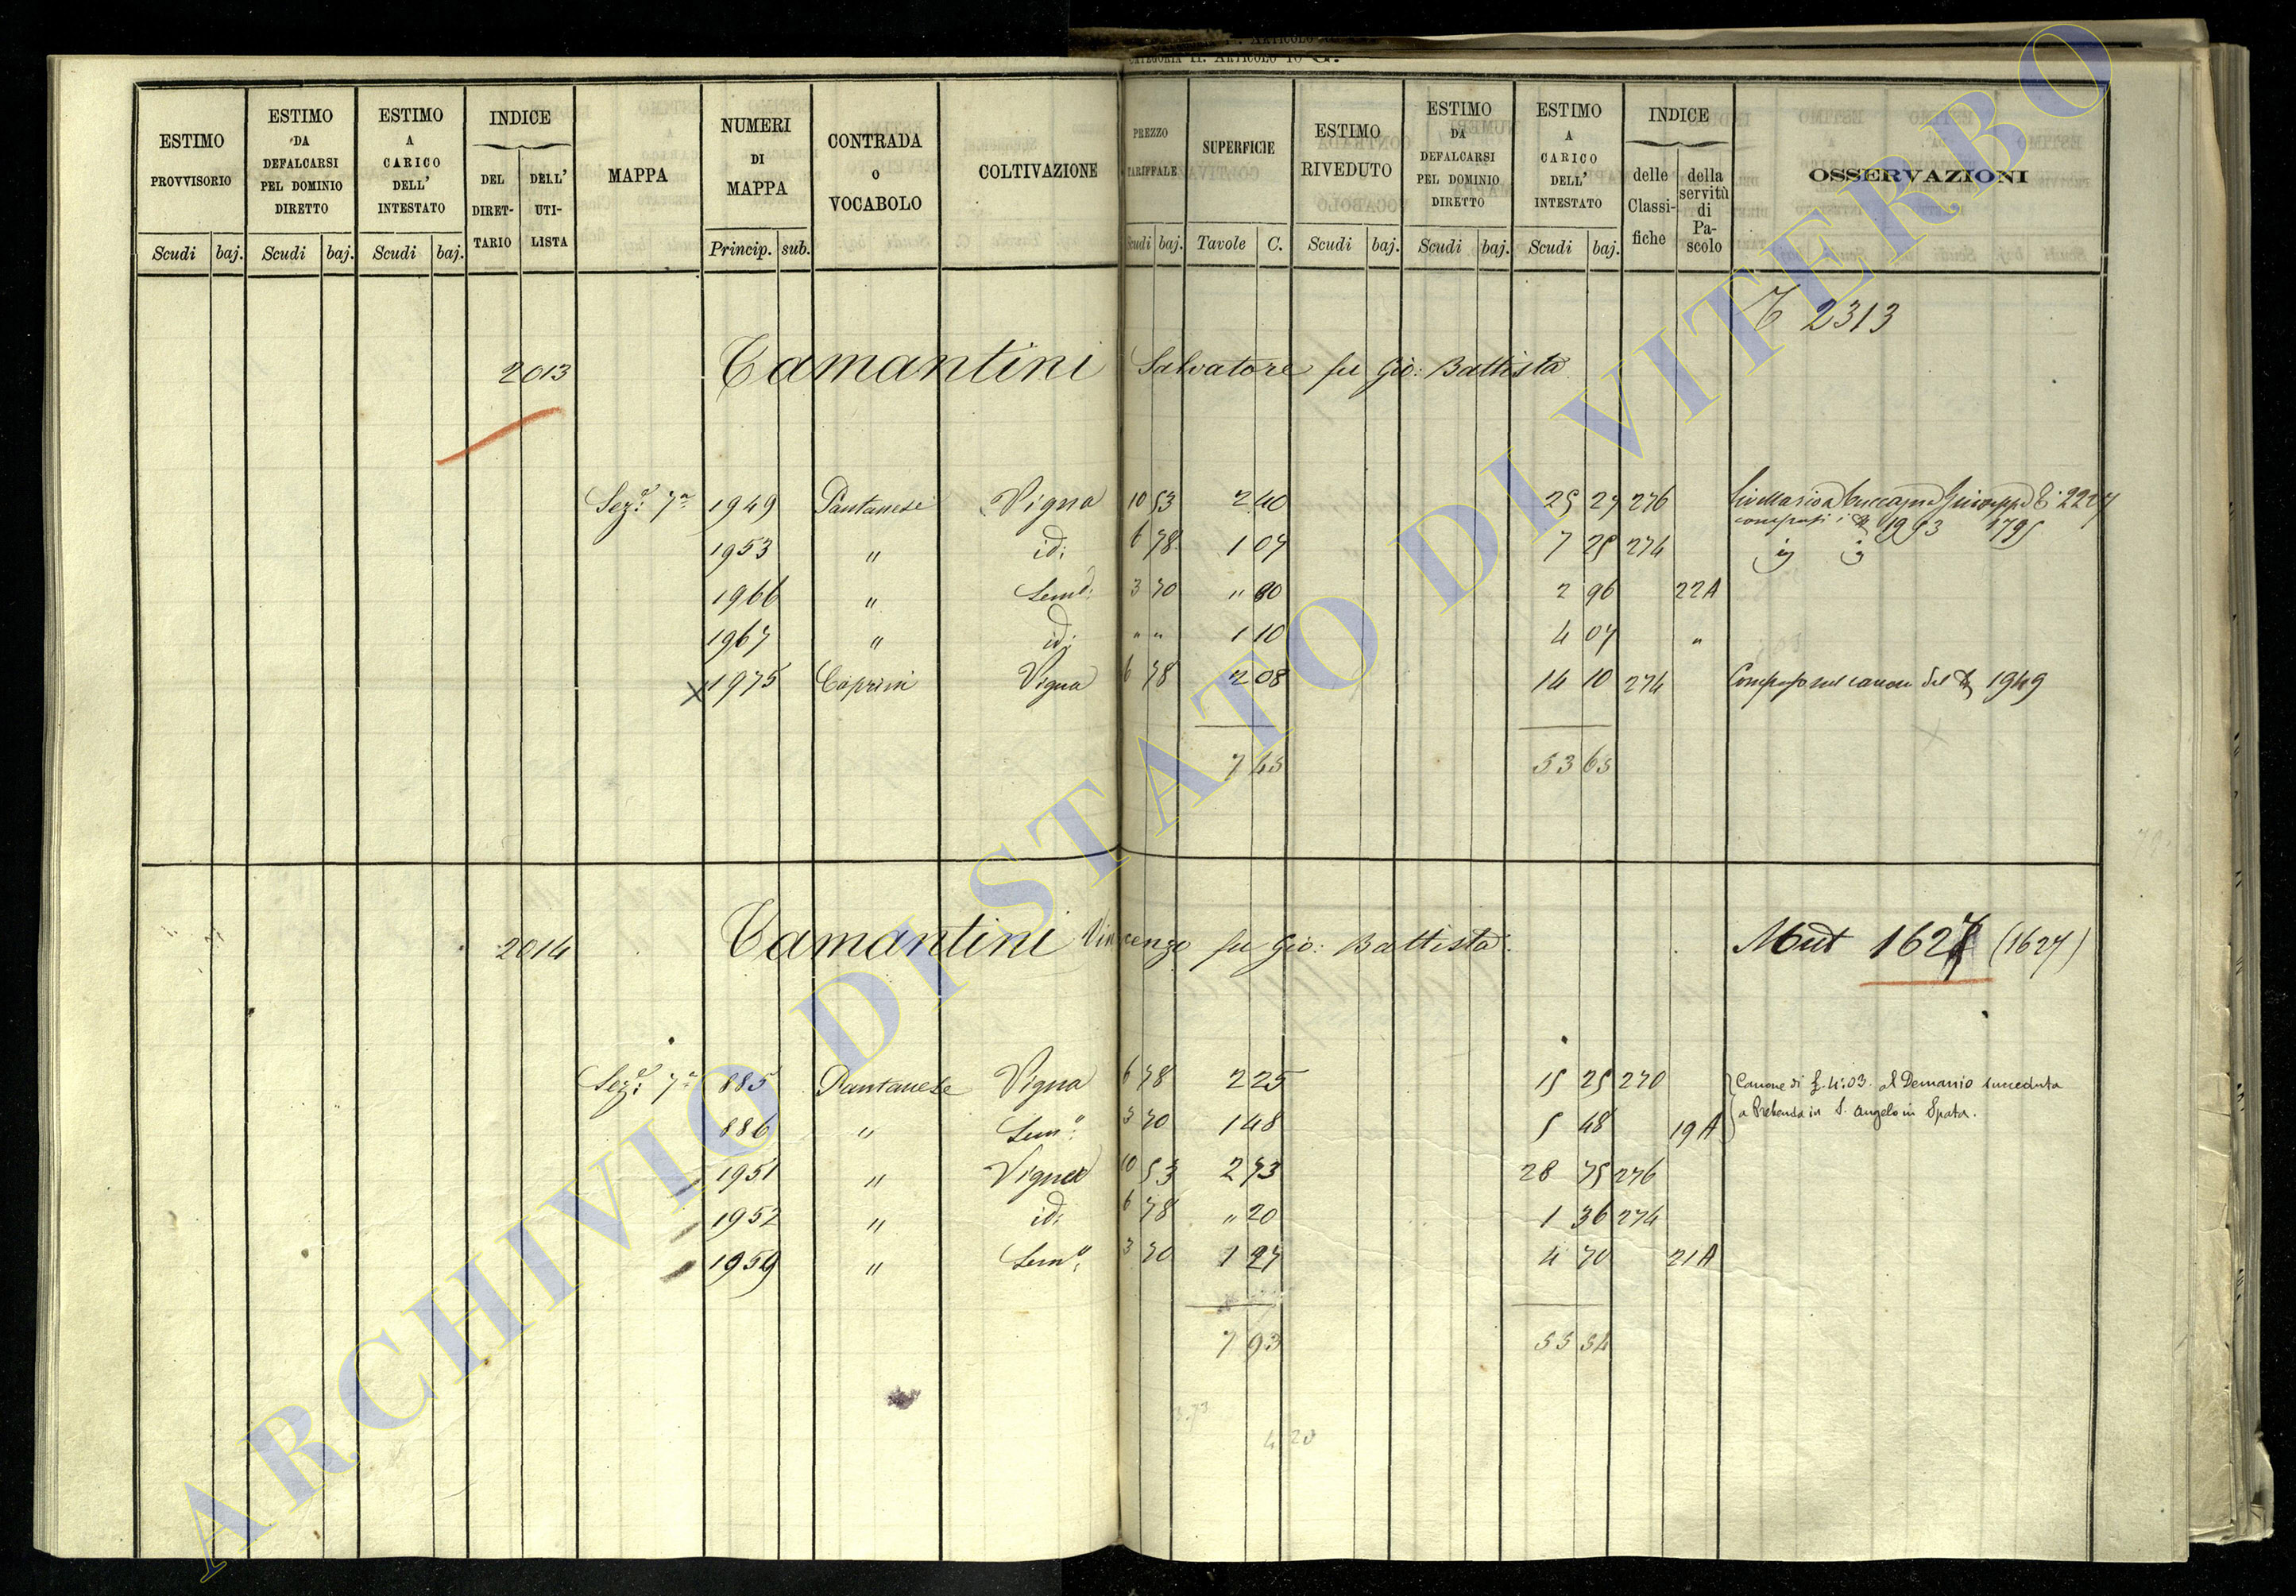 CATEGORIA II. ARTICOLO 10 G.
ESTIMO PROVVISORIO Scudi baj.
ESTIMO DA DEFALCARSI PEL DOMINIO DIRETTO Scudi baj.
ESTIMO A CARICO DELL' INTESTATO Scudi baj.
INDICE DEL DIRETTARIO DELL' UTILISTA
MAPPA
NUMERI DI MAPPA Princip. sub.
CONTRADA O VOCABOLO
COLTIVAZIONE
PREZZO TARIFFALE Scudi baj.
SUPERFICIE Tavole C.
ESTIMO RIVEDUTO Scudi baj.
ESTIMO DA DEFALCARSI PEL DOMINIO DIRETTO Scudi baj.
ESTIMO A CARICO DELL' INTESTATO Scudi baj.
INDICE delle Classifiche della servitù di Pascolo
OSSERVAZIONI
2313
2013 Camantini Salvatore fu Gio: Battista
Sez.e 7a 1949 Pantanese Vigna 10 53 2 40 25 27 276 Giuseppe 2227
1993 1795
1953 " id: 6 78 1 07 7 25 274
1966 " Semo: 3 70 " 80 2 96 22A
1967 " id: " " 1 10 4 07 "
x 1975 Caprini Vigna 6 78 2 08 14 10 274 Compreso nel canone del N 1949
7 45 53 65
2014 Camantini Vincenzo fu Gio: Battista Mut 1627 (1627)
Sez.e 7a 885 Pantanese Vigna 6 78 2 25 15 25 270 Canone di £. 4:03. al Demanio succeduto
a Prebenda in S. Angelo in Spata.
886 " Semo: 3 70 1 48 5 48 19A
1951 " Vigna 10 53 2 73 28 75 276
1952 " id: 6 78 " 20 1 36 274
1959 " Semo: 3 70 1 27 4 70 21A
7 93 55 54
3.73
4 20
ARCHIVIO DI STATO DI VITERBO